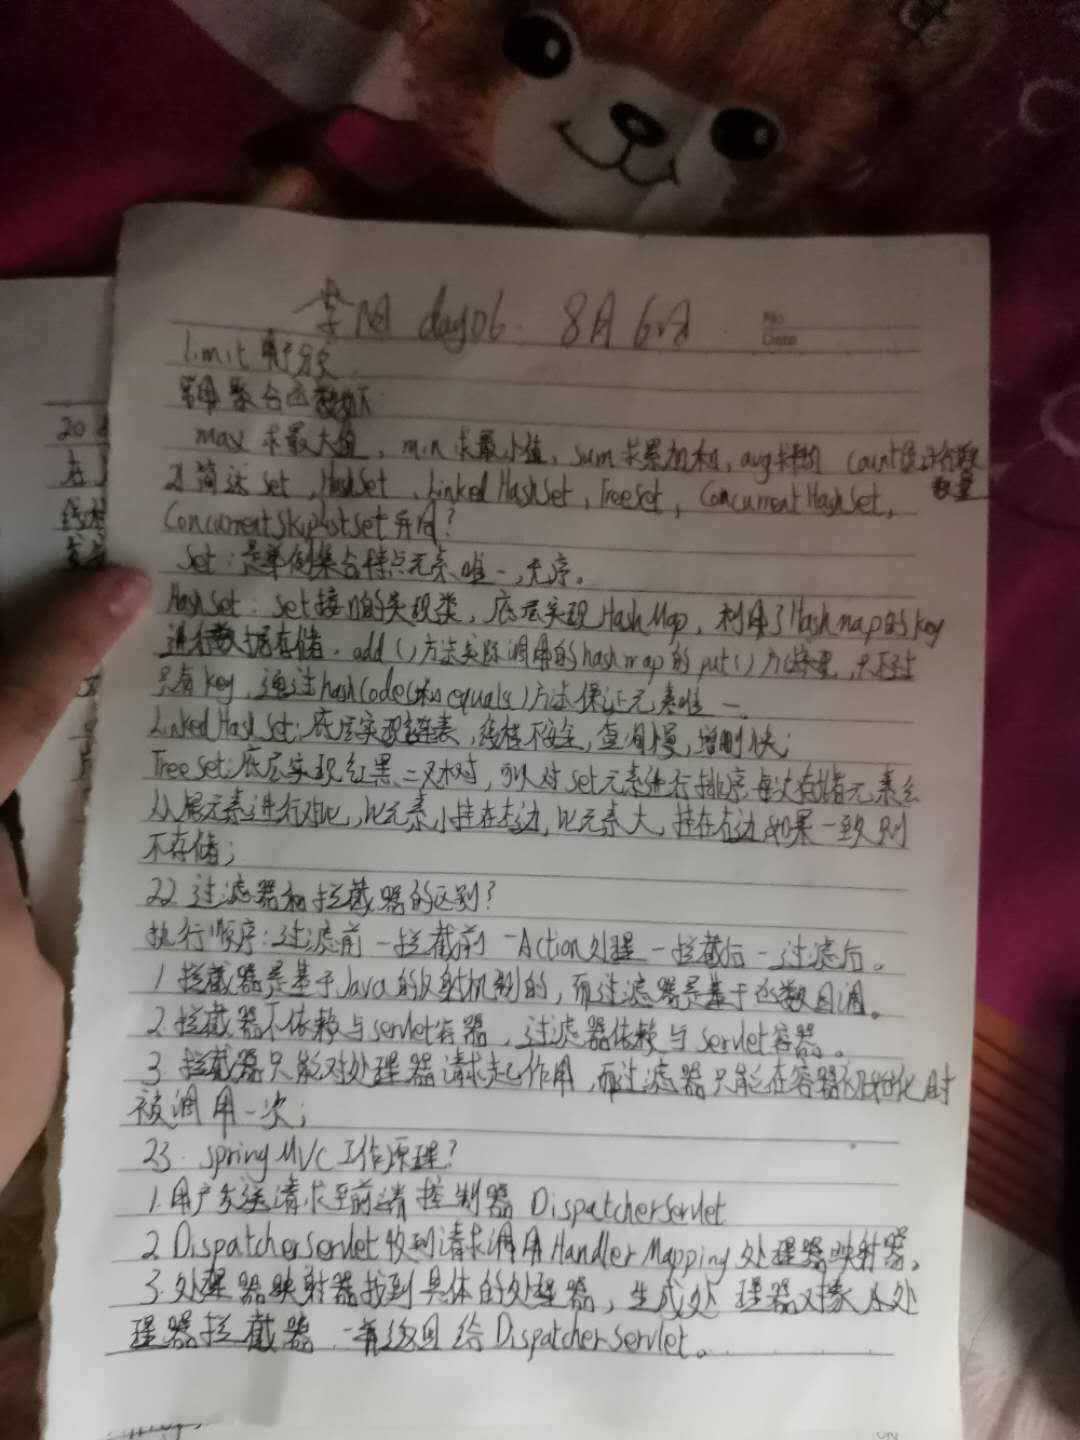 day06 8月6日
No.
Date
limit 用于分页
常用聚合函数如下
max 求最大值, min 求最小值, sum 求累加和, avg 求平均 count 统计个数
数量
21 简述 set, HashSet, Linked HashSet, TreeSet, ConcurrentHashSet,
ConcurrentSkiplistSet 异同?
Set: 是单例集合特点元素唯一, 无序。
HashSet: set接口的实现类, 底层实现 HashMap, 利用了Hashmap的key
进行数据存储. add()方法实际调用的hashmap的put()方法, 只不过
只有key, 通过hashCode()和equals()方法保证元素唯一。
Linked Hash Set: 底层实现链表, 线程不安全, 查询慢, 增删快;
Tree Set: 底层实现红黑二叉树, 可以对set元素进行排序每次存储元素会
从根元素进行对比, 比元素小挂在左边, 比元素大, 挂在右边如果一致则
不存储;
22. 过滤器和拦截器的区别?
执行顺序: 过滤前-拦截前-Action处理-拦截后-过滤后。
1 拦截器是基于Java的反射机制的, 而过滤器是基于函数回调。
2. 拦截器不依赖与servlet容器, 过滤器依赖与servlet容器。
3. 拦截器只能对处理器请求起作用, 而过滤器只能在容器初始化时
被调用一次;
23. spring MVC 工作原理?
1. 用户发送请求至前端控制器 DispatcherServlet
2. DispatcherServlet收到请求调用Handler Mapping 处理器映射器。
3. 处理器映射器找到具体的处理器, 生成处理器对象及处
理器拦截器 一并返回给DispatcherServlet。
20